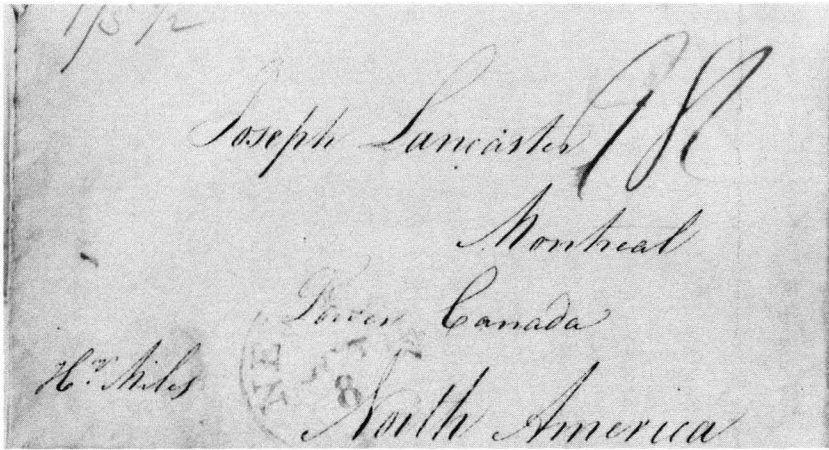 1/5 1/2
Joseph Lancaster
Montreal
Lower Canada
Hy. Miles
NE
8
North America